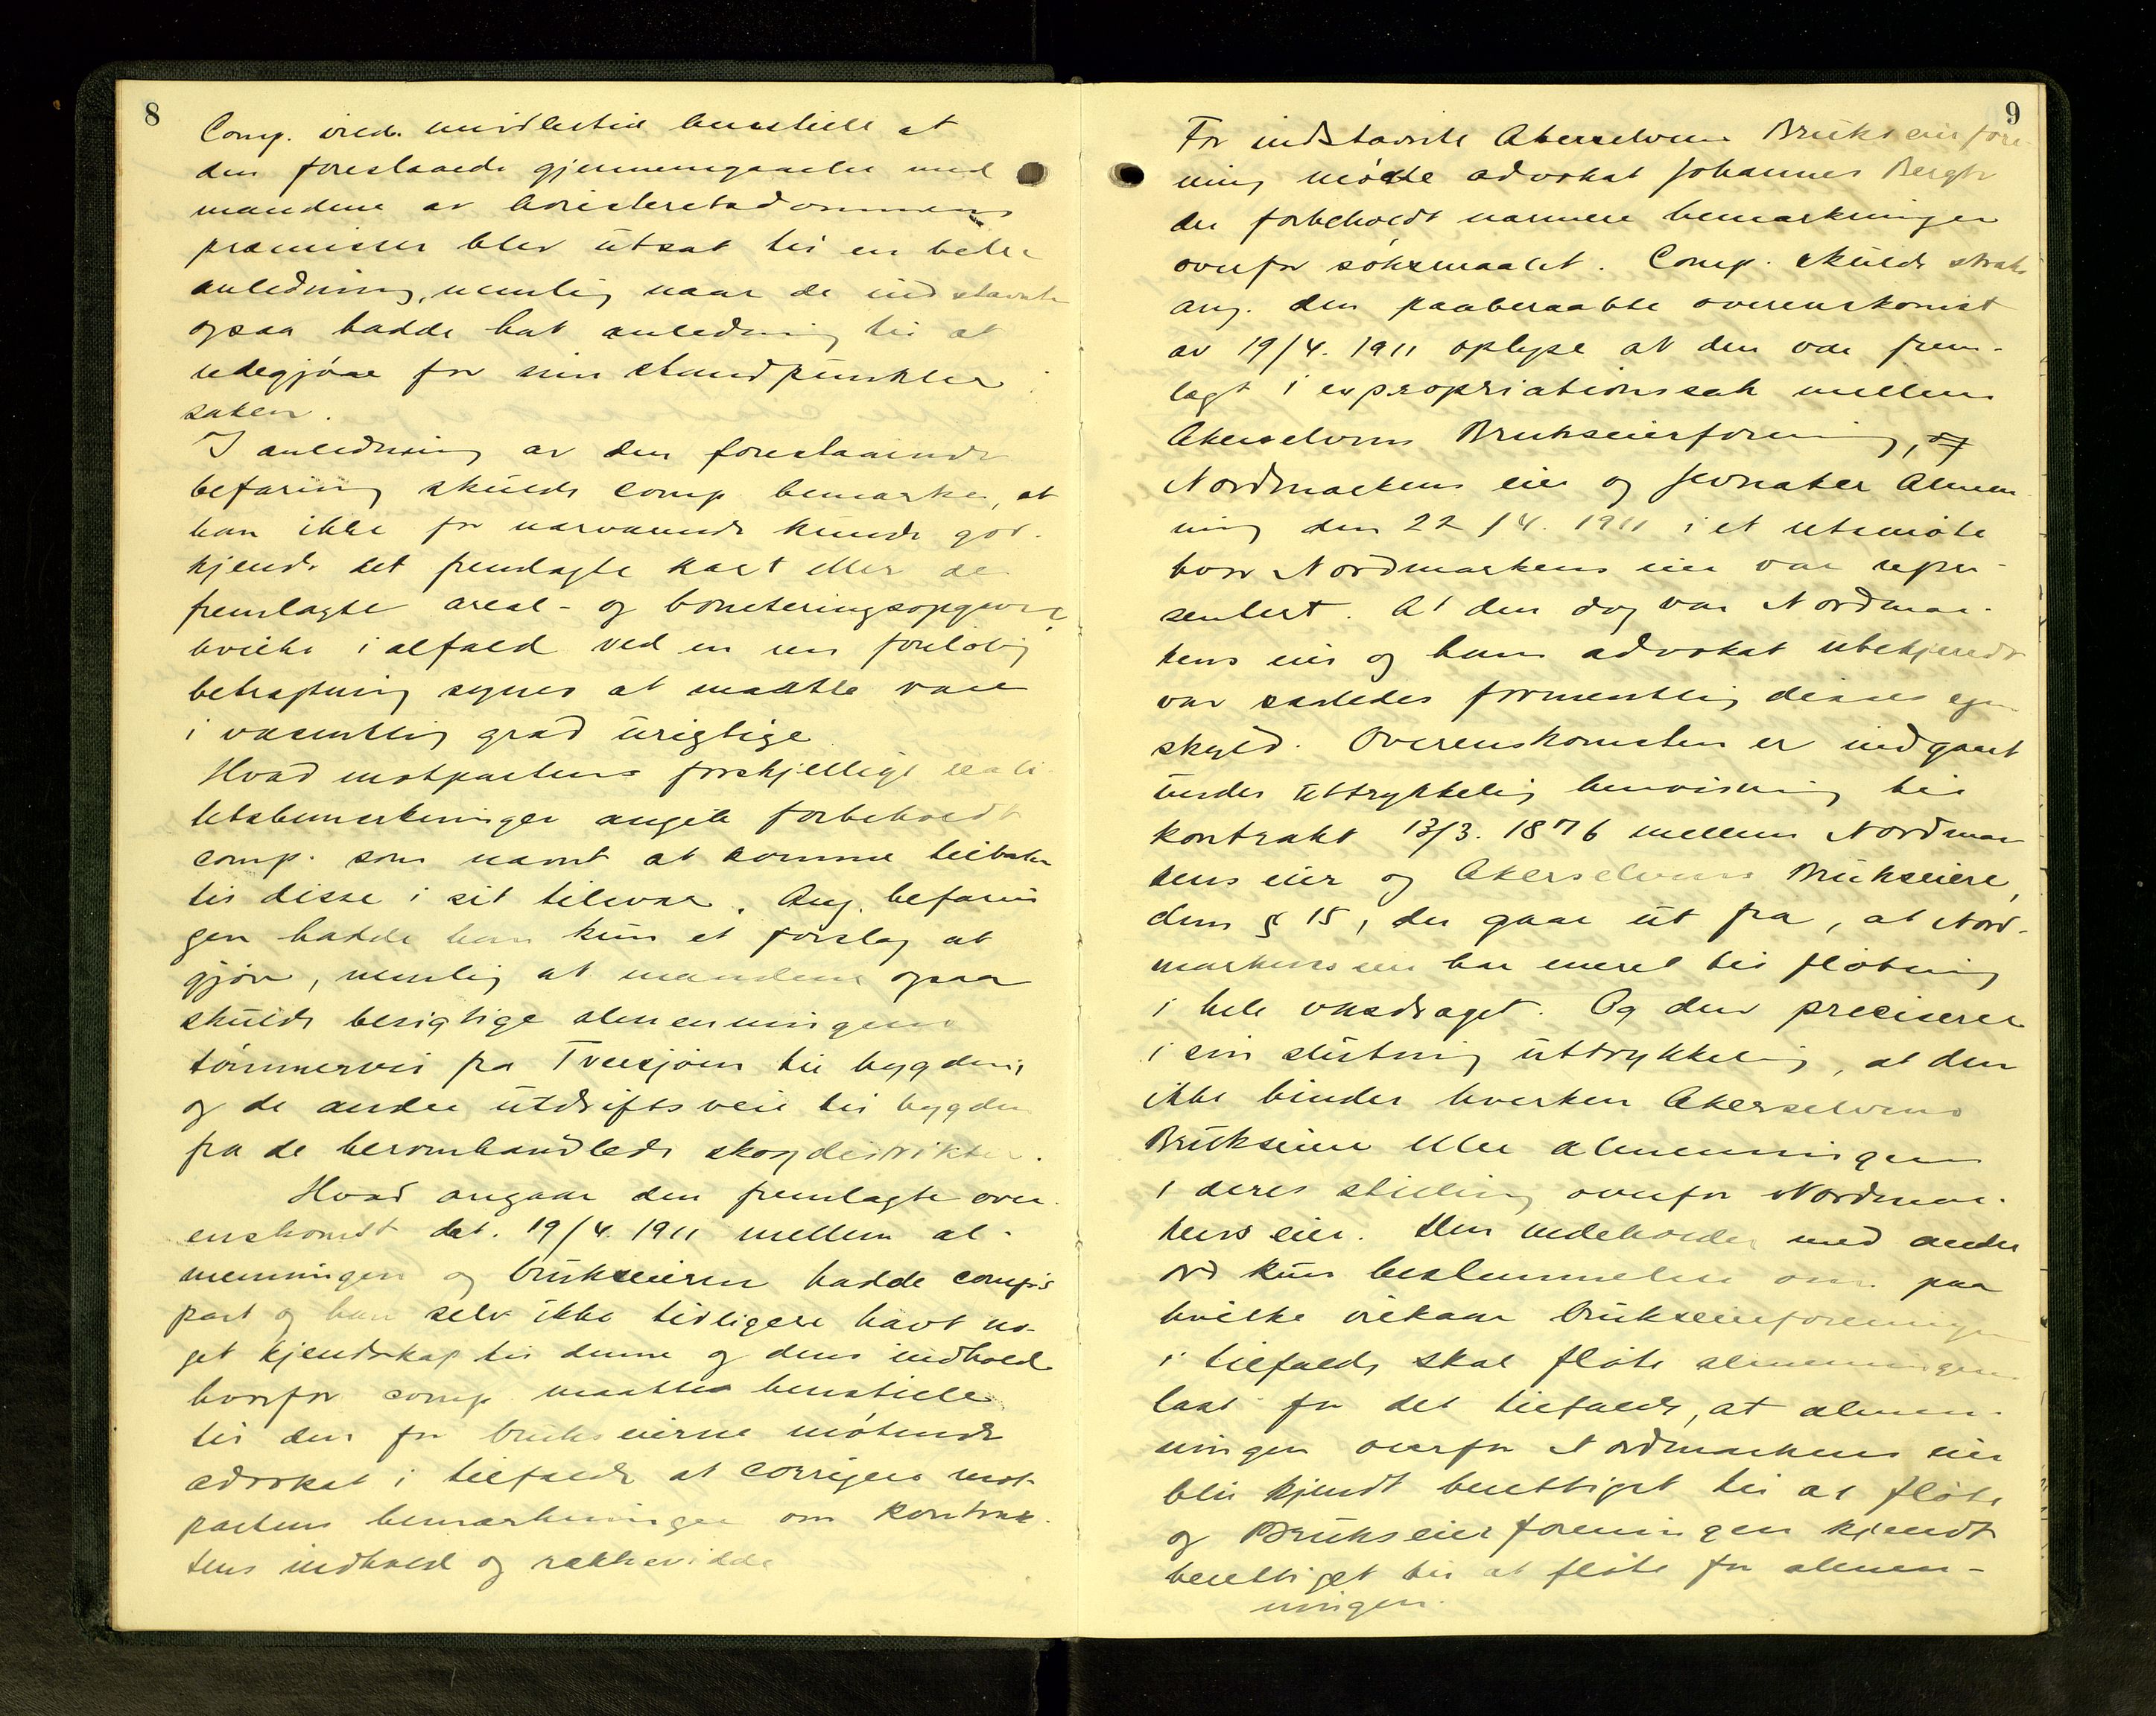 8
Comp. vilde imidlertid henstille at
den foreslaaede gjennemgaaelse med
mændene av höiesteretsdommens
præmisser blev utsat til en bedre
anledning, nemlig naar de indstævnte
ogsaa hadde hat anledning til at
redegjöre for sine standpunkter i
saken.
I anledning av den forestaaende
befaring skulde comp. bemærke, at
han ikke for nærværende kunde god-
kjende det fremlagte kart eller de
fremlagte areal- og boniteringsopgaver,
hvilke ialfald ved en ren forelöbig
betragtning synes at maatte være
i væsentlig grad urigtige
Hvad motpartens forskjellige reali-
tetsbemerkninger angik forbeholdt
comp. som nævnt at komme tilbake
til disse i sit tilsvar. Ang. befarin
gen hadde han kun et forslag at
gjöre, nemlig at mændene ogsaa
skulde besigtige almenningens
tömmervei fra Tversjöen til bygden,
og de andre utdriftsveie til bygden
fra de heromhandlede skogdistrikter.
Hvad angaar den fremlagte over-
enskomst dat. 19/4. 1911 mellem al-
menningen og brukseierne hadde comp's
part og han selv ikke tidligere hävt no-
get kjendskap til denne og dens indhold
hvorfor comp. maatte henstille
til den for brukseierne mötende
advokat i tilfælde at corrigere mot-
partens bemærkninger om kontrak-
tens indhold og rækkevidde
9
For indstævnte Akerselvens Brukseierfore-
ning mödte advokat Johannes Bergh
der forbeholdt nærmere bemærkninger
overfor söksmaalet. Comp. skulde straks
ang. den paaberaabte overenskomst
av 19/4. 1911 oplyse at den var frem-
lagt i expropriationssak mellem
Akerselvens Brukseierforening, og
Nordmarkens eier og Jevnaker Almen
ning den 22/4. 1911 i et retsmöte
hvor Nordmarkens eier var repre-
sentert. At den dog var Nordmar-
kens eier og hans advokat ubekjendt
var saaledes formentlig disses egen
skyld. Overenskomsten er indgaat
under uttrykkelig henvisning til
kontrakt 13/3. 1876 mellem Nordmar
kens eier og Akerselvens Brukseiere,
dens § 15, der gaar ut fra, at Nord-
markens eier har eneret til flötning
i hele vasdraget. Og den preciserer
i sin slutning uttrykkelig, at den
ikke binder hverken Akerselvens
Brukseiere eller almenningen
i deres stilling overfor Nordmar-
kens eier. Den indeholder med andre
ord kun bestemmelse om paa
hvilke vilkaar brukseierforeningen
i tilfælde skal flöte almenningens
last for det tilfælde, at almen-
ningen overfor Nordmarkens eier
blir kjendt berettiget til at flöte
og Brukseierforeningen kjendt
berettiget til at flöte for almen-
ningen.